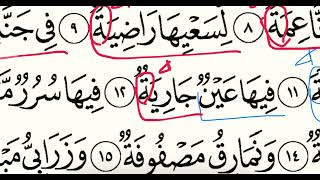 نَّاعِمَةٌ ٨ لِسَعْيِهَا رَاضِيَةٌ ٩ فِى جَنَّ
١١ فِيهَا عَيْنٌ جَارِيَةٌ ١٢ فِيهَا سُرُرٌ مَّ
١٤ وَنَمَارِقُ مَصْفُوفَةٌ ١٥ وَزَرَابِىُّ مَبْ